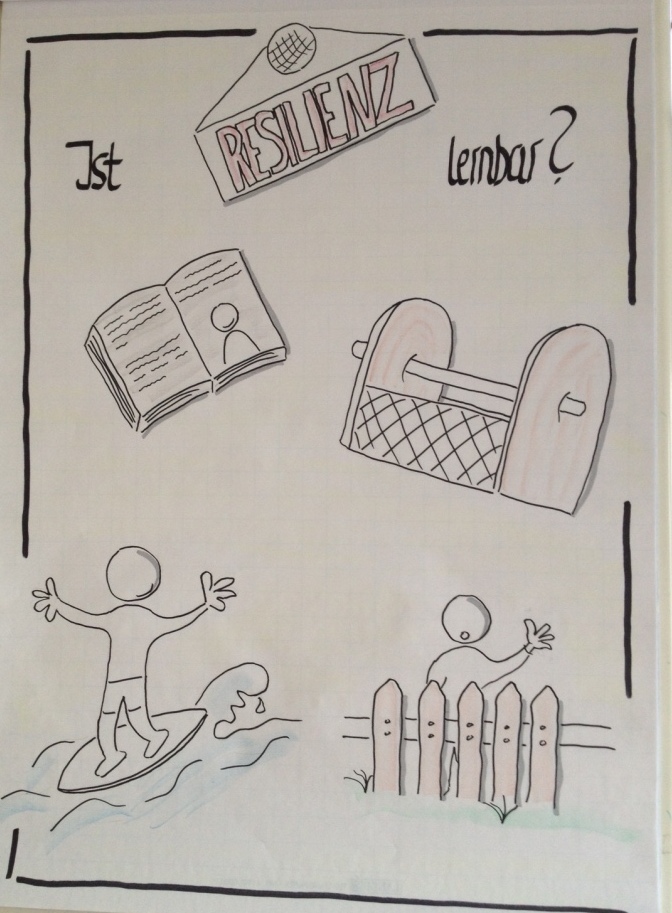 Ist RESILIENZ lernbar?